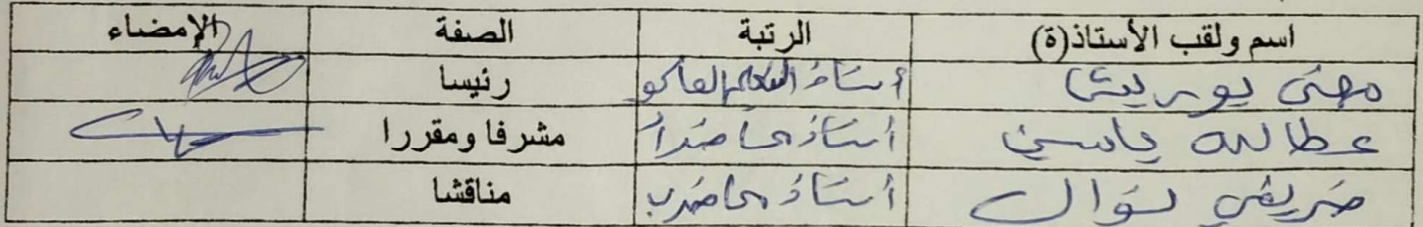 اسم ولقب الأستاذ(ة) الرتبة الصفة الإمضاء
أستاذ التعليم العالي رئيسا
عطالله ياسين أستاذ محاضر أ مشرفا ومقررا
أستاذ محاضر ب مناقشا